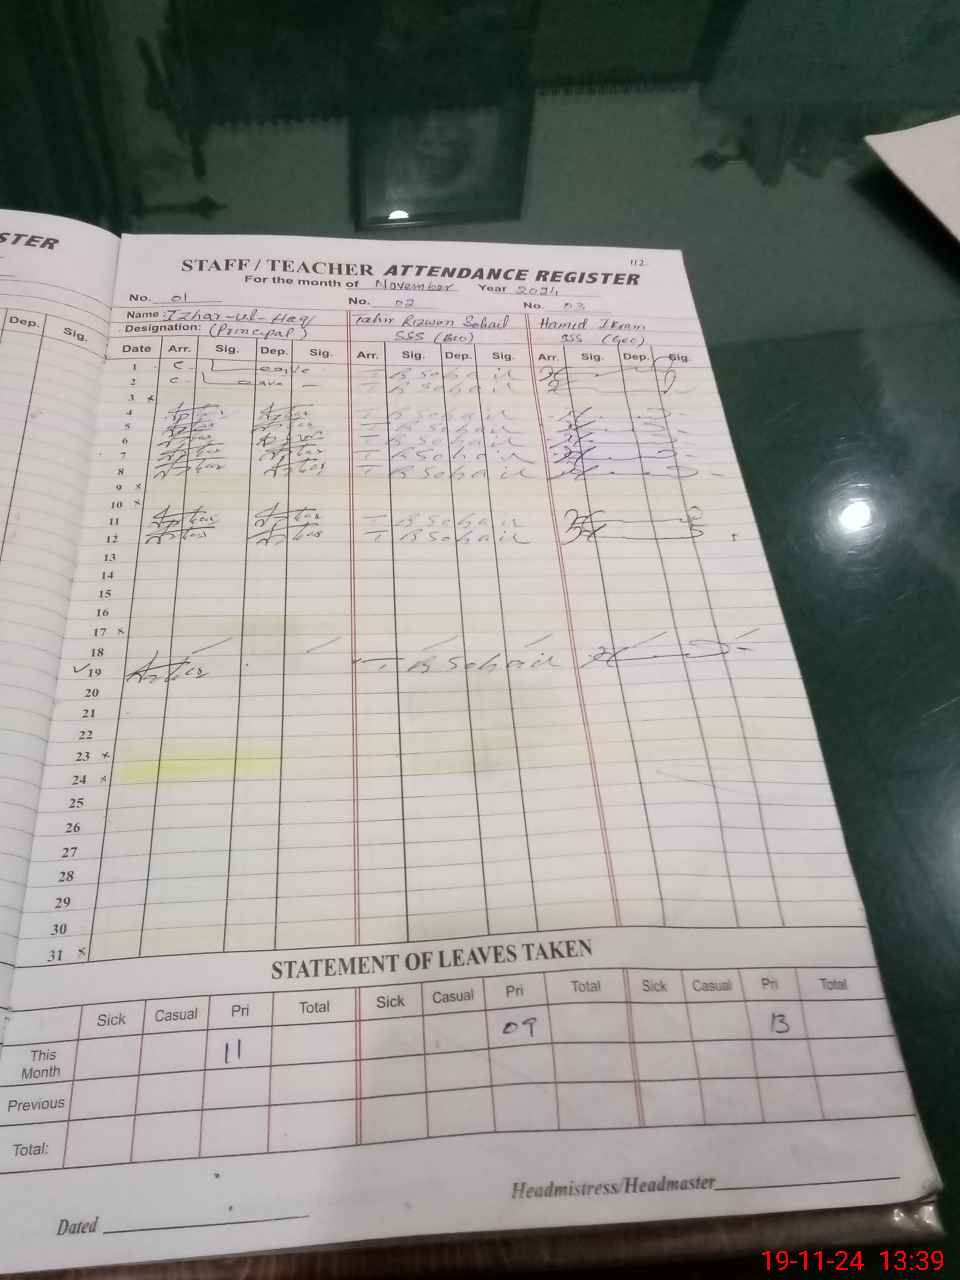 STER
112
STAFF / TEACHER ATTENDANCE REGISTER
For the month of November Year 2024
No. 01 No. 02 No. 03
Name: Izhar-ul-Haq Tahir Rizwan Sohail Hamid
Designation: (Principal) SSS (Bio) SSS (Geo)
Dep. Sig.
Date Arr. Sig. Dep. Sig. Arr. Sig. Dep. Sig. Arr. Sig. Dep. Sig.
1 C. Leave T R Sohail
2 C. Leave T R Sohail
3 ×
4 T R Sohail
5 T R Sohail
6 T R Sohail
7 T R Sohail
8 T R Sohail
9 ×
10 ×
11 T R Sohail
12 T R Sohail
13
14
15
16
17 ×
18
✓19 T R Sohail
20
21
22
23 ×
24 ×
25
26
27
28
29
30
31 ×
STATEMENT OF LEAVES TAKEN
Sick Casual Pri Total Sick Casual Pri Total Sick Casual Pri Total
This Month 11 09 13
Previous
Total:
Headmistress/Headmaster
Dated
19-11-24 13:39